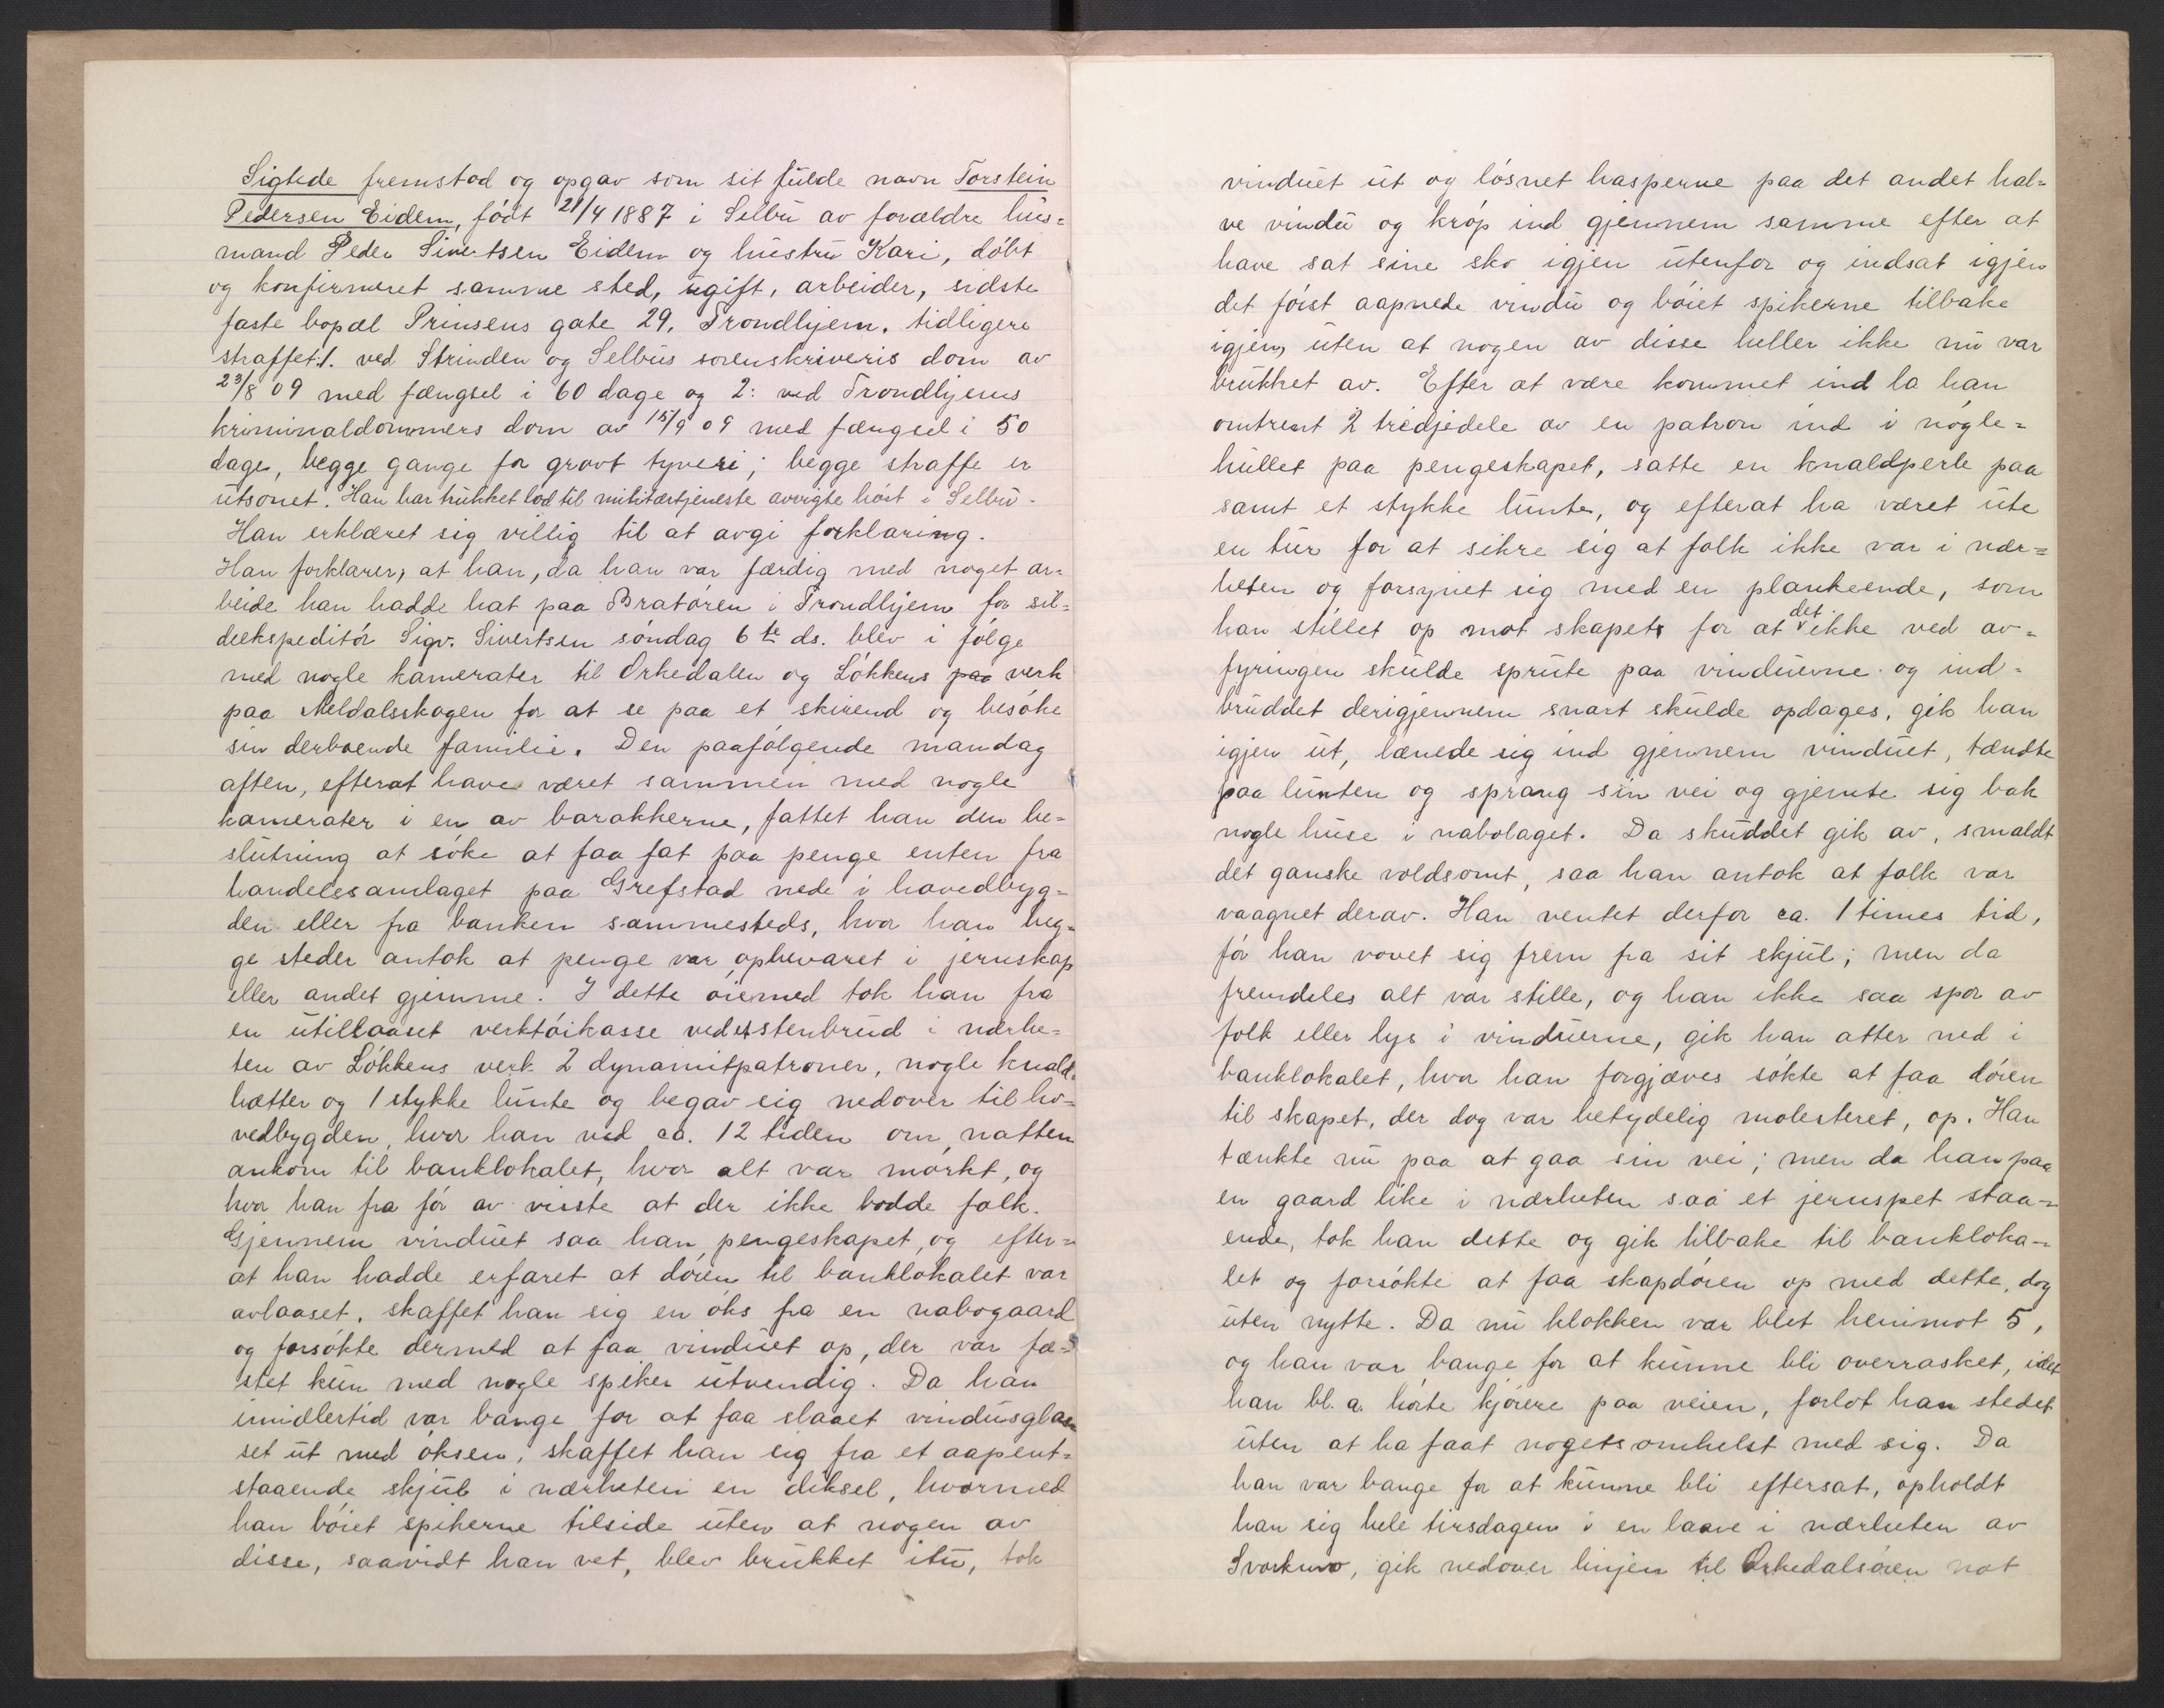 Sigtede fremstod og opgav som sit fulde navn Torstein
Pedersen Eidem, født 21/4 1887 i Selbu av forældre hus=
mand Peder Sivertsen Eidem og hustru Kari, døbt
og konfirmeret samme sted, ugift, arbeider, sidste
faste bopæl Prinsens gate 29, Trondhjem, tidligere
straffet: 1. ved Strinden og Selbus sorenskriveris dom av
23/8 09 med fængsel i 60 dage og 2: ved Trondhjems
kriminaldommers dom av 15/9 09 med fængsel i 50
dage, begge gange for grovt tyveri; begge straffe er
utsonet. Han har trukket lod til militærtjeneste avvigte høst i Selbu.
Han erklæret sig villig til at avgi forklaring.
Han forklarer, at han, da han var færdig med noget ar=
beide han hadde hat paa Bratøren i Trondhjem for sil=
deekspeditør Sigv. Sivertsen søndag 6te ds. blev i følge
med nogle kamerater til Orkedalen og Løkkens paa verk
paa Meldalsskogen for at se paa et skirend og besøke
sin derboende familie. Den paafølgende mandag
aften, efterat have været sammen med nogle
kamerater i en av barakkerne, fattet han den be=
slutning at søke at faa fat paa penge enten fra
handelssamlaget paa Grefstad nede i hovedbyg=
den eller fra banken sammesteds, hvor han beg=
ge steder antok at penge var opbevaret i jernskap
eller andet gjemme. I dette øiemed tok han fra
en utillaaset verktøikasse ved et stenbrud i nærhe=
ten av Løkkens verk 2 dynamitpatroner, nogle knald=
hætter og 1 stykke lunte og begav sig nedover til ho=
vedbygden, hvor han ved ca. 12 tiden om natten
ankom til banklokalet, hvor alt var mørkt, og
hvor han fra før av visste at der ikke bodde folk.
Gjennem vinduet saa han pengeskapet, og efter=
at han hadde erfaret at døren til banklokalet var
avlaaset, skaffet han sig en øks fra en nabogaard
og forsøkte dermed at faa vinduet op, der var fæ=
stet kun med nogle spiker utvendig. Da han
imidlertid var bange for at faa slaaet vindusglas
set ut med øksen, skaffet han sig fra et aapent=
staaende skjul i nærheten en diksel, hvormed
han bøiet spikerne tilside uten at nogen av
disse, saavidt han vet, blev brukket itu, tok
vinduet ut og løsnet hasperne paa det andet hal=
ve vindu og krøp ind gjennem samme efter at
have sat sine sko igjen utenfor og indsat igjen
det først aapnede vindu og bøiet spikerne tilbake
igjen, uten at nogen av disse heller ikke nu var
brukket av. Efter at være kommet ind la han
omtrent 2 tredjedele av en patron ind i nøgle=
hullet paa pengeskapet, satte en knaldperle paa
samt et stykke lunte, og efterat ha været ute
en tur for at sikre sig at folk ikke var i nær=
heten og forsynet sig med en plankeende, som
han stillet op mot skapet for at det ikke ved av=
fyringen skulde sprute paa vinduerne og ind=
bruddet derigjennem snart skulde opdages, gik han
igjen ut, lænede sig ind gjennem vinduet, tændte
paa lunten og sprang sin vei og gjemte sig bak
nogle huse i nabolaget. Da skuddet gik av, smaldt
det ganske voldsomt, saa han antok at folk var
vaagnet derav. Han ventet derfor ca. 1 times tid,
før han vovet sig frem fra sit skjul; men da
fremdeles alt var stille, og han ikke saa spor av
folk eller lys i vinduerne, gik han atter ned i
banklokalet, hvor han forgjæves søkte at faa døren
til skapet, der dog var betydelig molesteret, op. Han
tænkte nu paa at gaa sin vei; men da han paa
en gaard like i nærheten saa et jernspet staa=
ende, tok han dette og gik tilbake til bankloka=
let og forsøkte at faa skapdøren op med dette, dog
uten nytte. Da nu klokken var blet henimot 5,
og han var bange for at kunne bli overrasket, idet
han bl. a. hørte kjørere paa veien, forlot han stedet
uten at ha faat nogetsomhelst med sig. Da
han var bange for at kunne bli eftersat, opholdt
han sig hele tirsdagen i en laave i nærheten av
Svorkmo, gik nedover linjen til Orkedalsøren nat